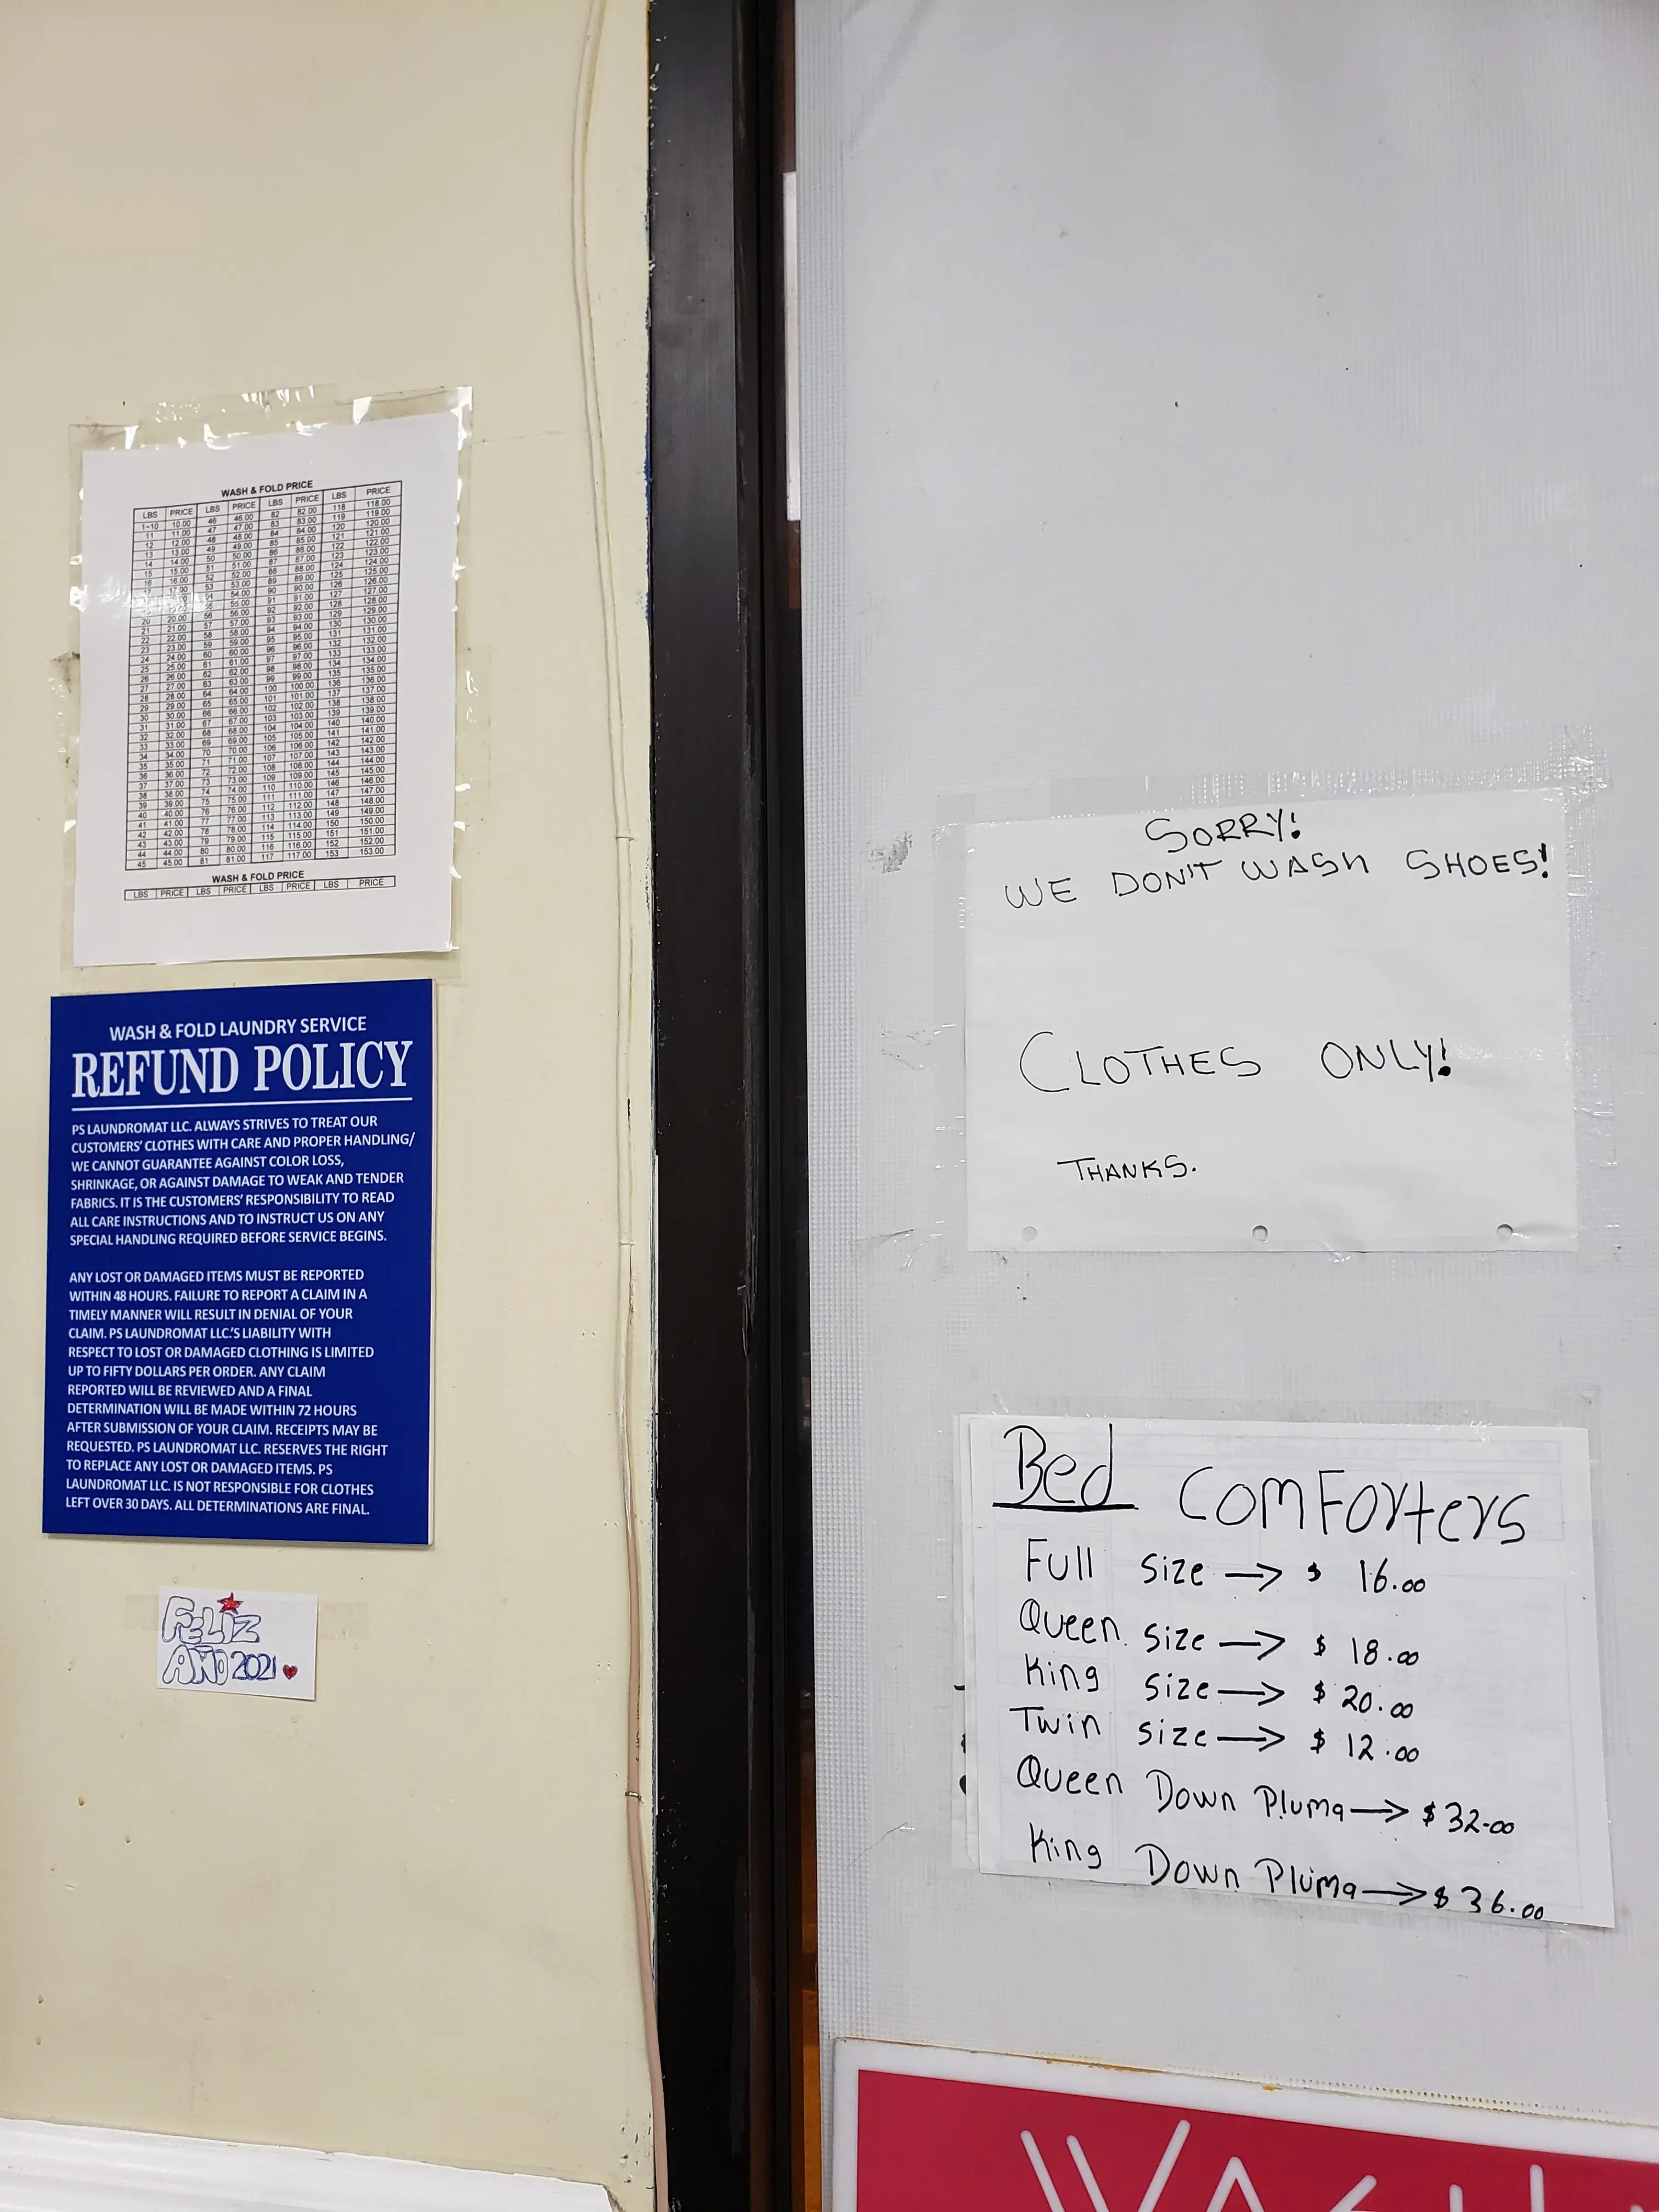 WASH & FOLD PRICE
LBS PRICE LBS PRICE LBS PRICE LBS PRICE
1-10 10.00 46 46.00 82 82.00 118 118.00
11 11.00 47 47.00 83 83.00 119 119.00
12 12.00 48 48.00 84 84.00 120 120.00
13 13.00 49 49.00 85 85.00 121 121.00
14 14.00 50 50.00 86 86.00 122 122.00
15 15.00 51 51.00 87 87.00 123 123.00
16 16.00 52 52.00 88 88.00 124 124.00
17.00 53 53.00 89 89.00 125 125.00
54.00 90 90.00 126 126.00
55.00 91 91.00 127 127.00
20 20.00 56 56.00 92 92.00 128 128.00
21 21.00 57 57.00 93 93.00 129 129.00
22 22.00 58 58.00 94 94.00 130 130.00
23 23.00 59 59.00 95 95.00 131 131.00
24 24.00 60 60.00 96 96.00 132 132.00
25 25.00 61 61.00 97 97.00 133 133.00
26 26.00 62 62.00 98 98.00 134 134.00
27 27.00 63 63.00 99 99.00 135 135.00
28 28.00 64 64.00 100 100.00 136 136.00
29 29.00 65 65.00 101 101.00 137 137.00
30 30.00 66 66.00 102 102.00 138 138.00
31 31.00 67 67.00 103 103.00 139 139.00
32 32.00 68 68.00 104 104.00 140 140.00
33 33.00 69 69.00 105 105.00 141 141.00
34 34.00 70 70.00 106 106.00 142 142.00
35 35.00 71 71.00 107 107.00 143 143.00
36 36.00 72 72.00 108 108.00 144 144.00
37 37.00 73 73.00 109 109.00 145 145.00
38 38.00 74 74.00 110 110.00 146 146.00
39 39.00 75 75.00 111 111.00 147 147.00
40 40.00 76 76.00 112 112.00 148 148.00
41 41.00 77 77.00 113 113.00 149 149.00
42 42.00 78 78.00 114 114.00 150 150.00
43 43.00 79 79.00 115 115.00 151 151.00
44 44.00 80 80.00 116 116.00 152 152.00
45 45.00 81 81.00 117 117.00 153 153.00
WASH & FOLD PRICE
LBS PRICE LBS PRICE LBS PRICE LBS PRICE
WASH & FOLD LAUNDRY SERVICE
REFUND POLICY
PS LAUNDROMAT LLC. ALWAYS STRIVES TO TREAT OUR
CUSTOMERS' CLOTHES WITH CARE AND PROPER HANDLING/
WE CANNOT GUARANTEE AGAINST COLOR LOSS,
SHRINKAGE, OR AGAINST DAMAGE TO WEAK AND TENDER
FABRICS. IT IS THE CUSTOMERS' RESPONSIBILITY TO READ
ALL CARE INSTRUCTIONS AND TO INSTRUCT US ON ANY
SPECIAL HANDLING REQUIRED BEFORE SERVICE BEGINS.
ANY LOST OR DAMAGED ITEMS MUST BE REPORTED
WITHIN 48 HOURS. FAILURE TO REPORT A CLAIM IN A
TIMELY MANNER WILL RESULT IN DENIAL OF YOUR
CLAIM. PS LAUNDROMAT LLC.'S LIABILITY WITH
RESPECT TO LOST OR DAMAGED CLOTHING IS LIMITED
UP TO FIFTY DOLLARS PER ORDER. ANY CLAIM
REPORTED WILL BE REVIEWED AND A FINAL
DETERMINATION WILL BE MADE WITHIN 72 HOURS
AFTER SUBMISSION OF YOUR CLAIM. RECEIPTS MAY BE
REQUESTED. PS LAUNDROMAT LLC. RESERVES THE RIGHT
TO REPLACE ANY LOST OR DAMAGED ITEMS. PS
LAUNDROMAT LLC. IS NOT RESPONSIBLE FOR CLOTHES
LEFT OVER 30 DAYS. ALL DETERMINATIONS ARE FINAL.
FELIZ
AÑO 2021
SORRY!
WE DON'T WASH SHOES!
CLOTHES ONLY!
THANKS.
Bed ComForters
Full Size → $ 16.00
Queen Size → $ 18.00
King Size → $ 20.00
Twin Size → $ 12.00
Queen Down Pluma → $32.00
King Down Pluma → $36.00
WASH